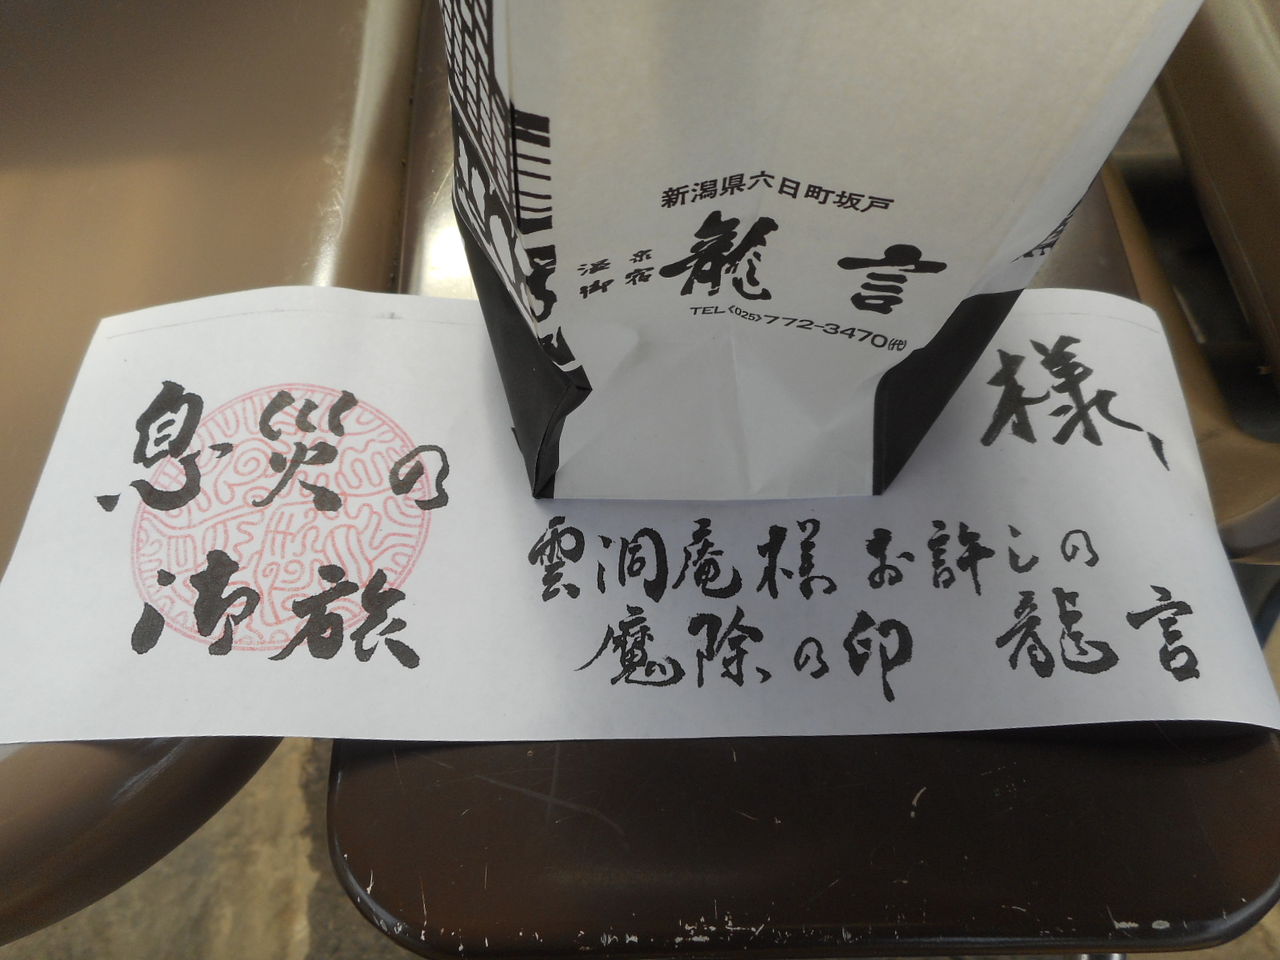 新潟県六日町坂戸
温泉
御宿
龍言
TEL〈025〉772-3470㈹
様
息災の
御旅
雲洞庵様お許しの
魔除の印 龍言